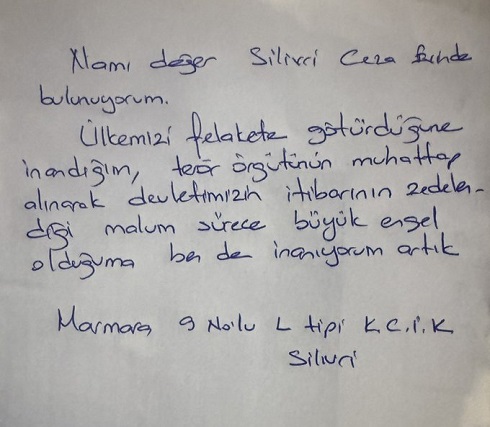 Namı değer Silivri Ceza Evinde
bulunuyorum.
Ülkemizi felakete götürdüğüne
inandığım, terör örgütünün muhattap
alınarak devletimizin itibarının zedelen-
diği malum sürece büyük engel
olduğuma ben de inanıyorum artık
Marmara 9 Nolu L tipi K.C.İ.K
Silivri